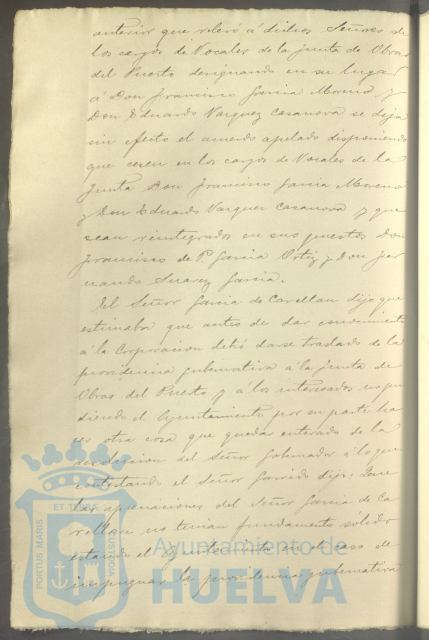 anterior que relevó á dichos Señores de
los cargos de Vocales de la Junta de Obras
del Puerto designando en su lugar
á Don Francisco Garcia Moreno y
Don Eduardo Vazquez Casanova se deja
sin efecto el acuerdo apelado disponiendo
que cesen en los cargos de Vocales de la
Junta Don Francisco Garcia Moreno
y Don Eduardo Vazquez Casanova y que
sean reintegrados en sus puestos Don
Francisco de P. Garcia Ortiz y Don Fer
nando Suarez Garcia.
El Señor Garcia de Carellan dijo que
estimaba que antes de dar conocimiento
á la Corporacion debió darse traslado de la
providencia gubernativa á la Junta de
Obras del Puerto y á los interesados no pu
diendo el Ayuntamiento por su parte ha
cer otra cosa que quedar enterado de la
resolucion del Señor Gobernador á lo que
contestando el Señor Garrido dijo: Que
las apreciaciones del Señor Garcia de Ca
rellan no tenian fundamento sólido
estando el Ayuntamiento en el caso de
impugnar la providencia gubernativa
PORTUS MARIS ET TERRAE CUSTODIA
Ayuntamiento de
HUELVA